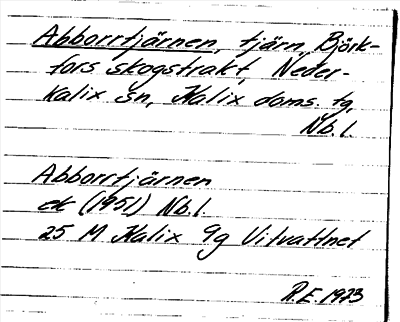 Abborrtjärnen, tjärn, Björk-
fors skogstrakt, Neder-
kalix sn, Kalix doms. tg,
Nb. l.
Abborrtjärnen
ek (1951) Nb. l.
25 M Kalix 9g Vitvattnet
R.E. 1973